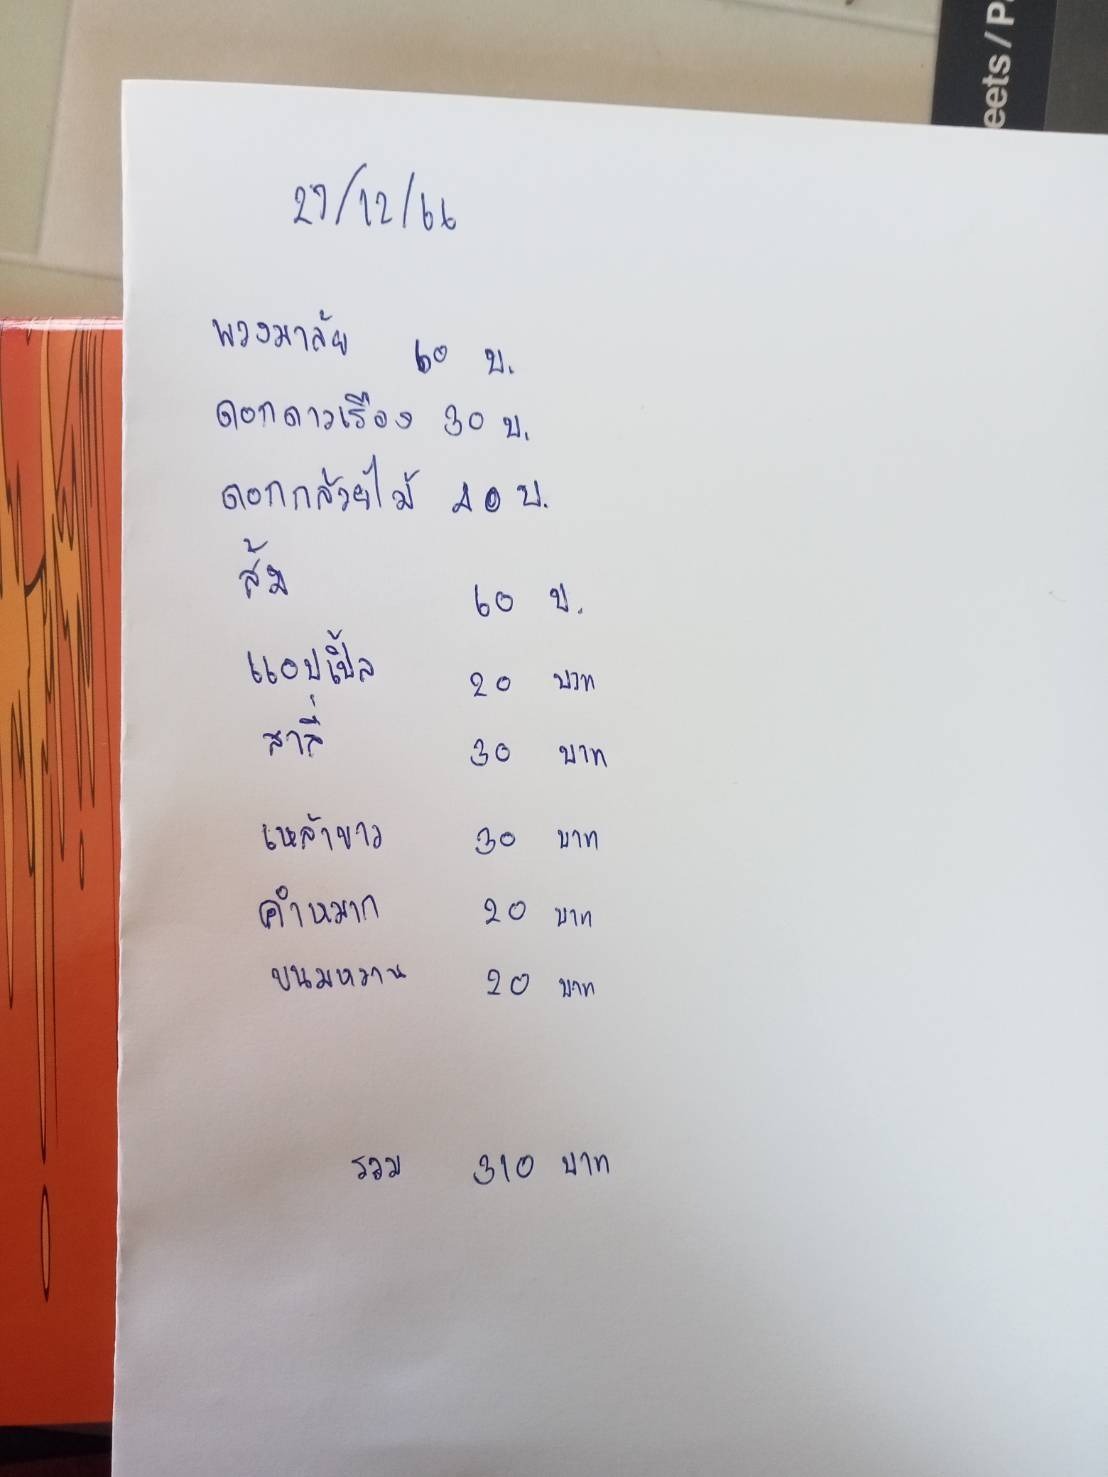 eets / Pa
27/12/66
พวงมาลัย 60 บ.
ดอกดาวเรือง 30 บ.
ดอกกล้วยไม้ 40 บ.
ส้ม 60 บ.
แอปเปิ้ล 20 บาท
สาลี่ 30 บาท
เหล้าขาว 30 บาท
คำหมาก 20 บาท
ขนมหวาน 20 บาท
รวม 310 บาท